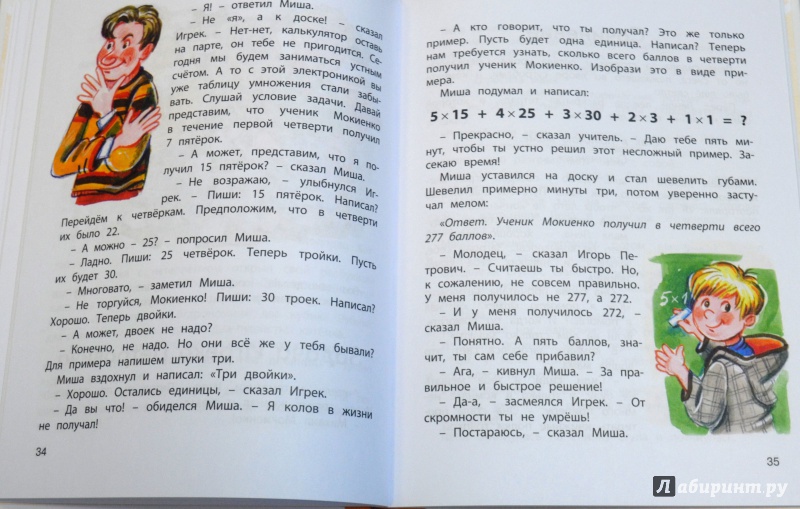 – Я! – ответил Миша.
– Не «я», а к доске! – сказал
Игрек. – Нет-нет, калькулятор оставь
на парте, он тебе не пригодится. Се-
годня мы будем заниматься устным
счётом. А то с этой электроникой вы
уже таблицу умножения стали забы-
вать. Слушай условие задачи. Давай
представим, что ученик Мокиенко
в течение первой четверти получил
7 пятёрок.
– А может, представим, что я по-
лучил 15 пятёрок? – сказал Миша.
– Не возражаю, – улыбнулся Иг-
рек. – Пиши: 15 пятёрок. Написал?
Перейдём к четвёркам. Предположим, что в четверти
их было 22.
– А можно – 25? – попросил Миша.
– Ладно. Пиши: 25 четвёрок. Теперь тройки. Пусть
их будет 30.
– Многовато, – заметил Миша.
– Не торгуйся, Мокиенко! Пиши: 30 троек. Написал?
Хорошо. Теперь двойки.
– А может, двоек не надо?
– Конечно, не надо. Но они всё же у тебя бывали?
Для примера напишем штуки три.
Миша вздохнул и написал: «Три двойки».
– Хорошо. Остались единицы, – сказал Игрек.
– Да вы что! – обиделся Миша. – Я колов в жизни
не получал!
34
– А кто говорит, что ты получал? Это же только
пример. Пусть будет одна единица. Написал? Теперь
нам требуется узнать, сколько всего баллов в четверти
получил ученик Мокиенко. Изобрази это в виде при-
мера.
Миша подумал и написал:
5×15 + 4×25 + 3×30 + 2×3 + 1×1 = ?
– Прекрасно, – сказал учитель. – Даю тебе пять ми-
нут, чтобы ты устно решил этот несложный пример. За-
секаю время!
Миша уставился на доску и стал шевелить губами.
Шевелил примерно минуты три, потом уверенно засту-
чал мелом:
«Ответ. Ученик Мокиенко получил в четверти всего
277 баллов».
– Молодец, – сказал Игорь Пе-
трович. – Считаешь ты быстро. Но,
к сожалению, не совсем правильно.
У меня получилось не 277, а 272.
– И у меня получилось 272, –
сказал Миша.
– Понятно. А пять баллов, зна-
чит, ты сам себе прибавил?
– Ага, – кивнул Миша. – За пра-
вильное и быстрое решение!
– Да-а, – засмеялся Игрек. – От
скромности ты не умрёшь!
– Постараюсь, – сказал Миша.
5×1
35
Лабиринт.ру